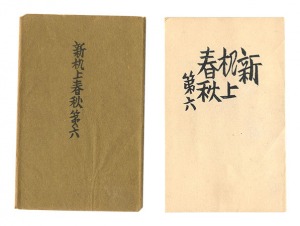 新机上春秋第六
新
机上
春秋
第六